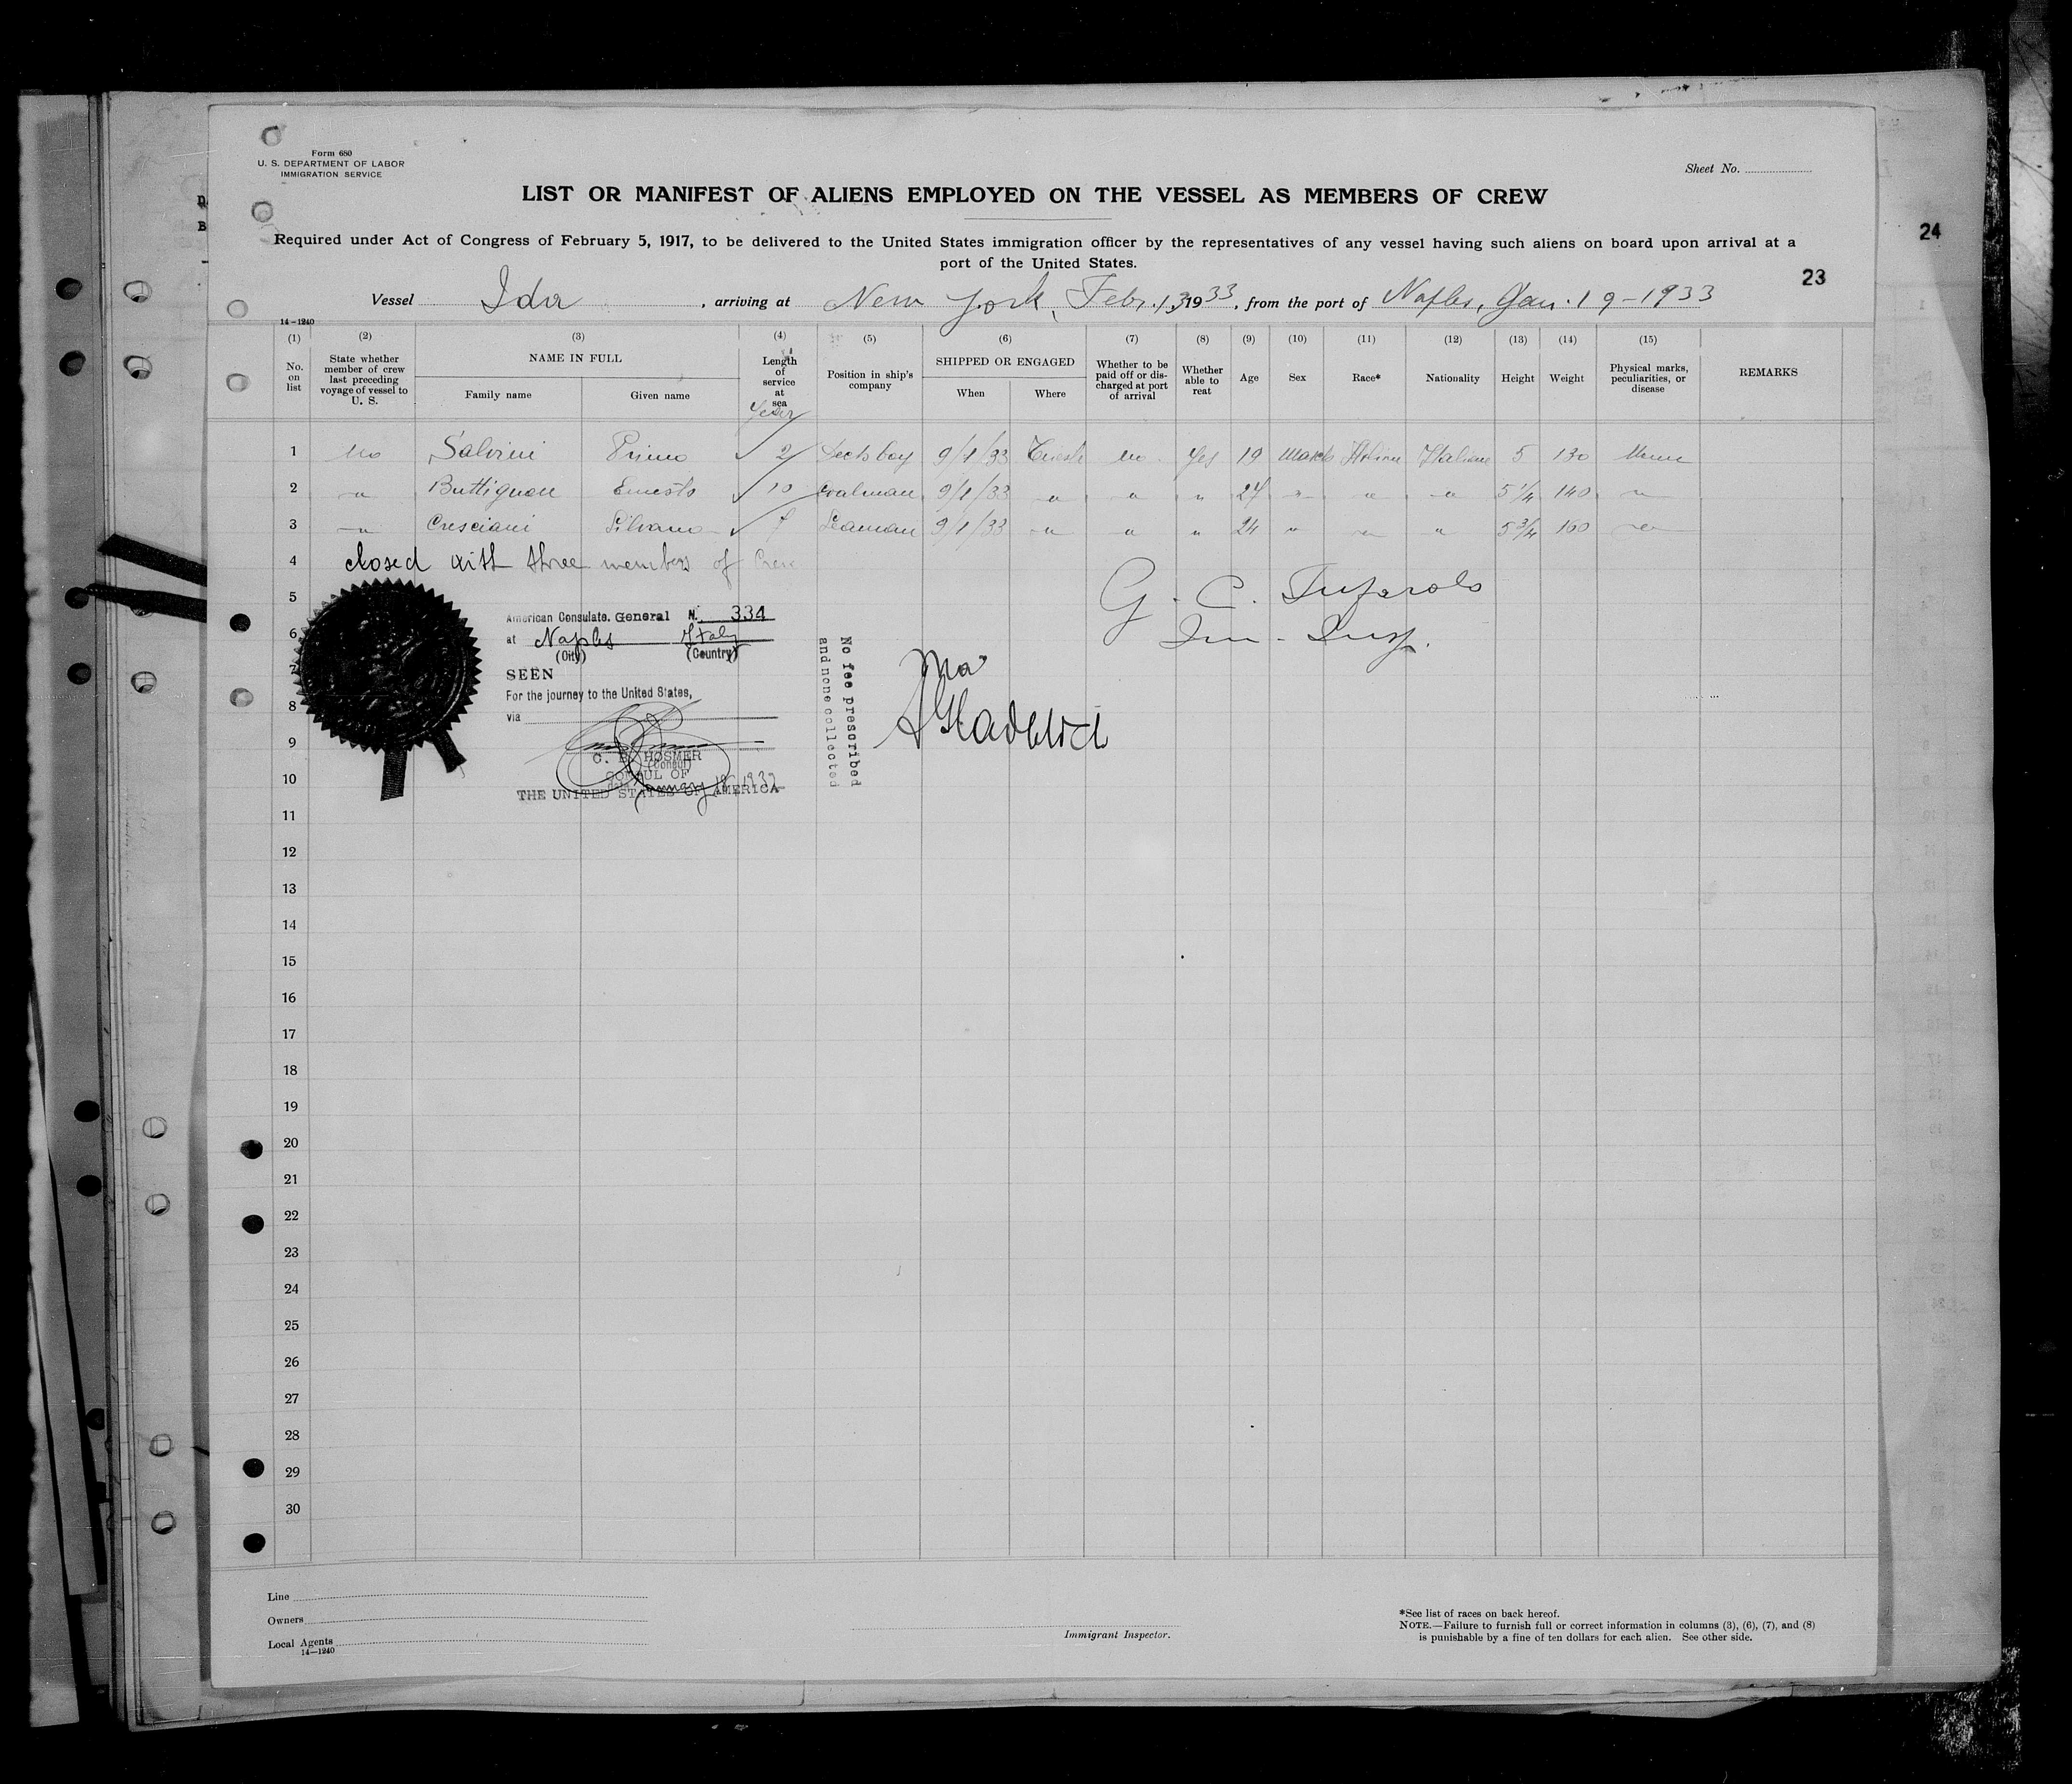 Form 680
U. S. DEPARTMENT OF LABOR
IMMIGRATION SERVICE
Sheet No.
LIST OR MANIFEST OF ALIENS EMPLOYED ON THE VESSEL AS MEMBERS OF CREW
Required under Act of Congress of February 5, 1917, to be delivered to the United States immigration officer by the representatives of any vessel having such aliens on board upon arrival at a
port of the United States.
24
23
Vessel Ida, arriving at New York, Febr. 13 1933, from the port of Naples, Jan. 19-1933
14-1240
(1) (2) (3) (4) (5) (6) (7) (8) (9) (10) (11) (12) (13) (14) (15)
No. on list
State whether member of crew last preceding voyage of vessel to U. S.
NAME IN FULL
Family name Given name
Length of service at sea
Position in ship's company
SHIPPED OR ENGAGED
When Where
Whether to be paid off or discharged at port of arrival
Whether able to reat
Age
Sex
Race*
Nationality
Height
Weight
Physical marks, peculiarities, or disease
REMARKS
1 no Salvini Primo 2 9/1/33 Trieste no yes 19 Italian Italian 5 130
2 " Buttignon Ernesto 10 coalman 9/1/33 " " " 27 " " " 5 1/4 140 "
3 " Cresciani Silvano Seaman 9/1/33 " " " 24 " " " 5 3/4 160 "
4 closed with three members of Crew
5
6
7
8
9
10
11
12
13
14
15
16
17
18
19
20
21
22
23
24
25
26
27
28
29
30
G. C. Tufarolo
Im. Insp.
American Consulate. General N. 334
at Naples Italy
(City) (Country)
SEEN
For the journey to the United States,
via
C. HOSMER
(Consul)
CONSUL OF
THE UNITED STATES OF AMERICA
No fee prescribed
and none collected
Line
Owners
Local Agents
14—1240
Immigrant Inspector.
*See list of races on back hereof.
NOTE.—Failure to furnish full or correct information in columns (3), (6), (7), and (8)
is punishable by a fine of ten dollars for each alien. See other side.